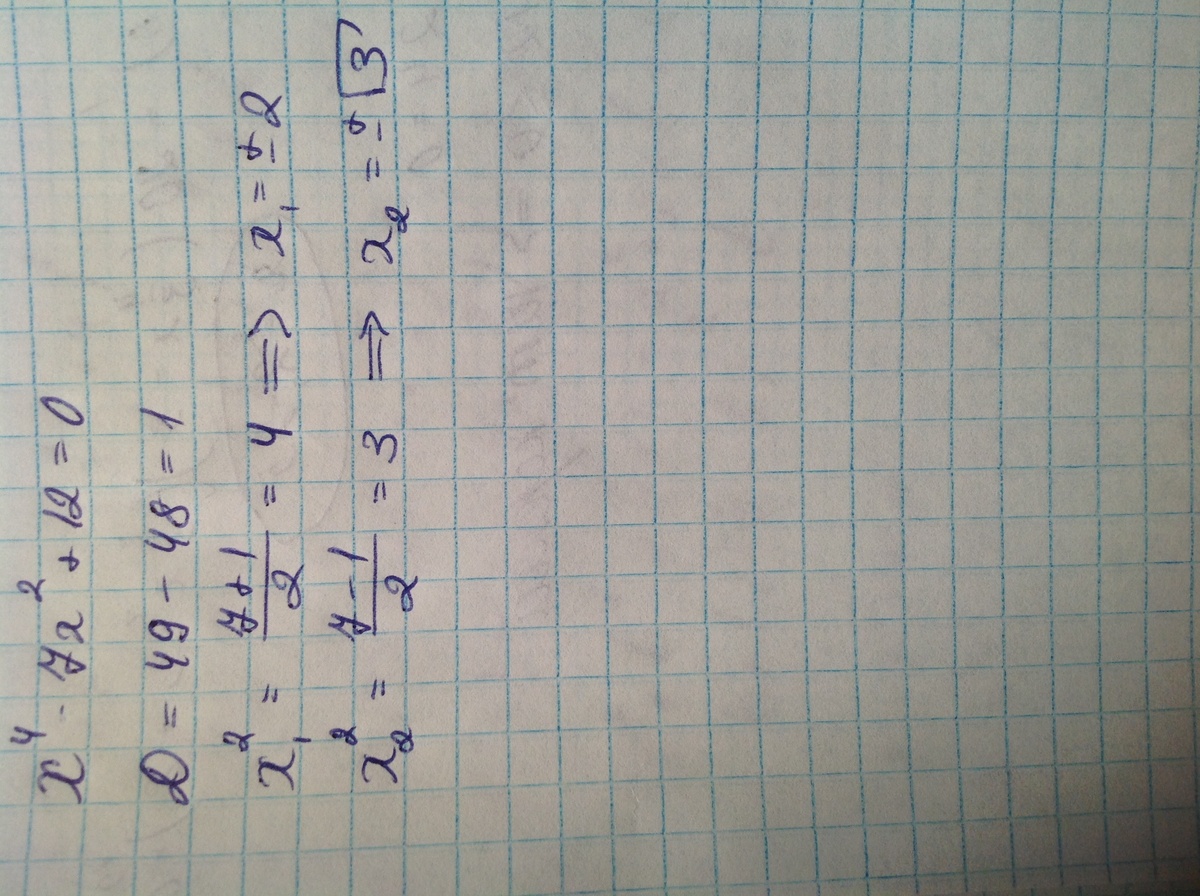 x⁴ - 7x² + 12 = 0
D = 49 - 48 = 1
x₁² = (7+1)/2 = 4 ⇒ x₁ = ±2
x₂² = (7-1)/2 = 3 ⇒ x₂ = ±√3